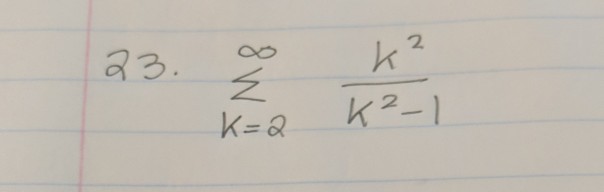 23. ∞ k²
Σ
k=2 k²-1